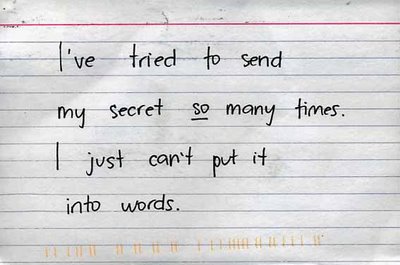 I've tried to send
my secret so many times.
I just can't put it
into words.